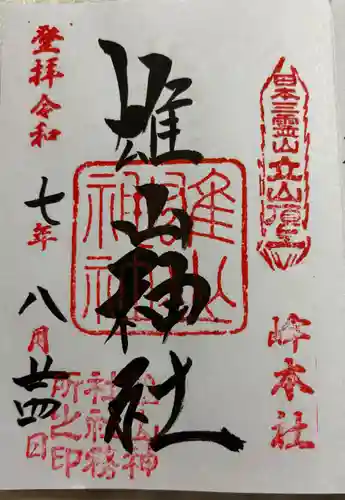 日本三霊山
立山頂上
峰本社
雄山神社
雄山神社
雄山神
社社務
所之印
登拝令和
七年
八月
廿四日